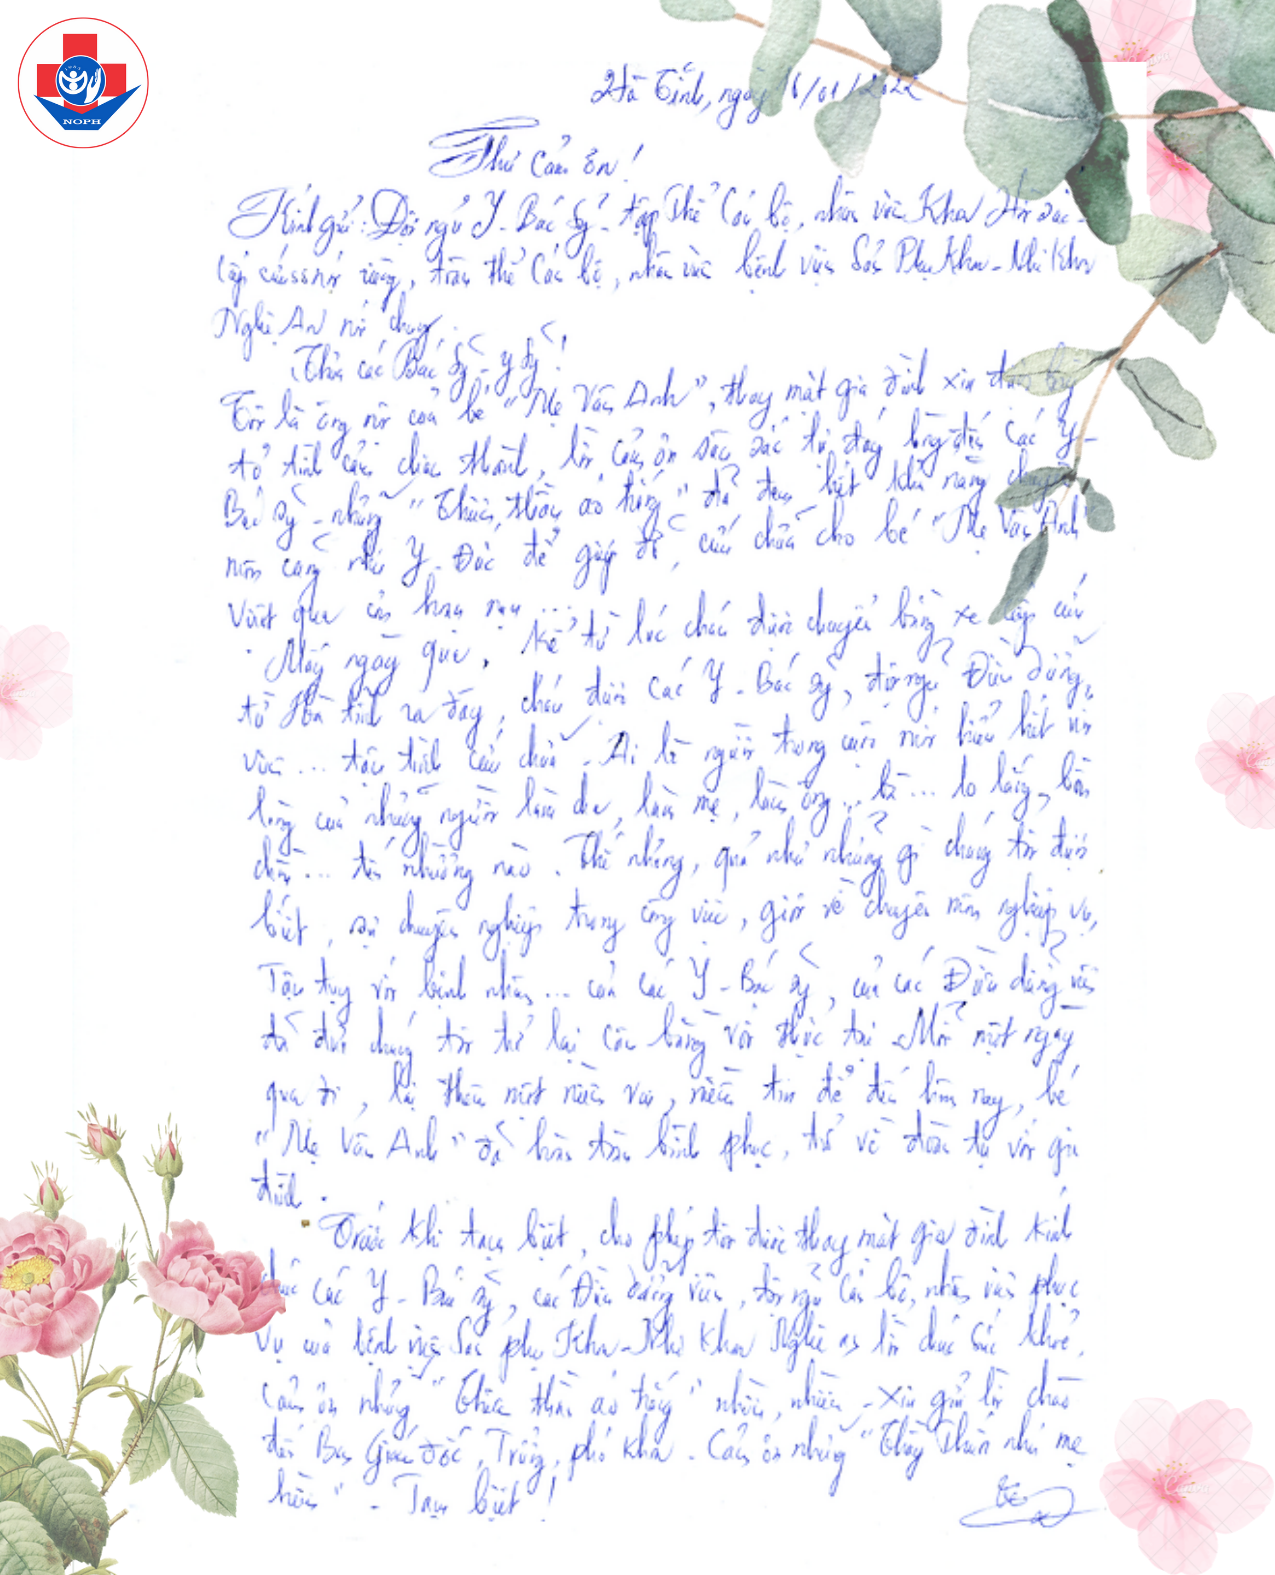 NOPH
Hà Tĩnh, ngày 16/01/2022
Thư cảm ơn!
Kính gửi: Đội ngũ Y - Bác sỹ - tập thể Cán bộ, nhân viên Khoa Hồi sức -
Cấp cứu nói riêng, toàn thể Cán bộ, nhân viên bệnh viện Sản Phụ Khoa - Nhi Khoa
Nghệ An nói chung.
Thưa các Bác sỹ, y sỹ!
Tôi là ông nội của bé "Mẹ Vân Anh", thay mặt gia đình xin được bày
tỏ tình cảm chân thành, lời cảm ơn sâu sắc từ đáy lòng đến Các Y -
Bác sỹ - những "Thiên thần áo trắng" đã đem hết khả năng chuyên
môn cũng như Y - Đức để giúp đỡ, cứu chữa cho bé "Mẹ Vân Anh"
Vượt qua cơn hoạn nạn ...
Mấy ngày qua, kể từ lúc cháu được chuyển bằng xe cấp cứu
từ Hà Tĩnh ra đây, cháu được các Y - Bác sỹ, đội ngũ Điều dưỡng
viên ... tận tình cứu chữa. Ai là người trong cuộc mới hiểu hết nỗi
lòng của những người làm cha, làm mẹ, làm ông ... bà ... lo lắng, bồn
chồn ... đến nhường nào. Thế nhưng, quả như những gì chúng tôi được
biết, sự chuyên nghiệp trong công việc, giỏi về chuyên môn nghiệp vụ,
Tận tụy với bệnh nhân ... của các Y - Bác sỹ, của các Điều dưỡng viên
đã đưa chúng tôi trở lại cân bằng với thực tại. Mỗi một ngày
qua đi, lại thêm một niềm vui, niềm tin để đến hôm nay, bé
"Mẹ Vân Anh" đã hoàn toàn bình phục, trở về đoàn tụ với gia
đình.
Trước khi tạm biệt, cho phép tôi được thay mặt gia đình kính
chúc các Y - Bác sỹ, các Điều dưỡng viên, đội ngũ cán bộ, nhân viên phục
vụ của bệnh viện Sản phụ Khoa - Nhi Khoa Nghệ an lời chúc sức khoẻ.
Cảm ơn những "Thiên thần áo trắng" nhiều, nhiều - Xin gửi lời chào
đến Ban Giám đốc, Trưởng, phó khoa. Cảm ơn những "Thầy Thuốc như mẹ
hiền" - Tạm biệt!